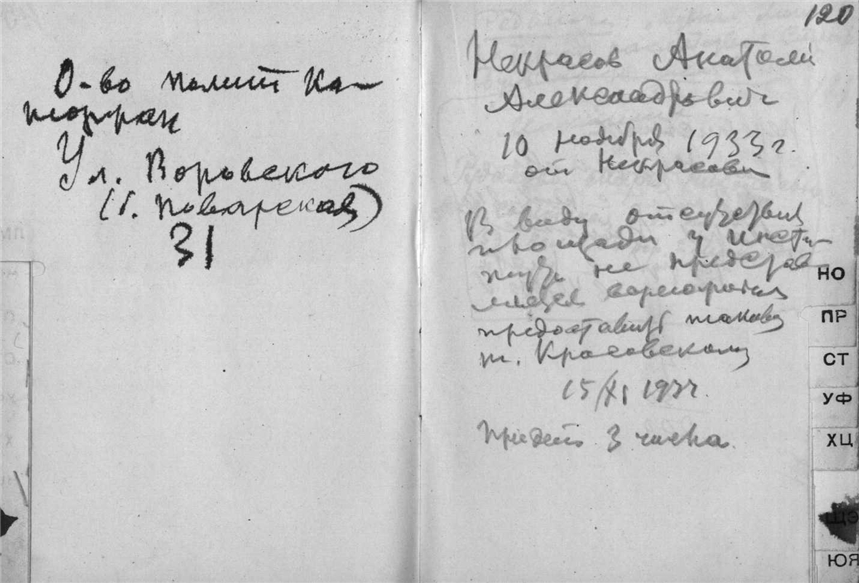 О-во полит ка-
торжан
Ул. Воровского
(б. Поварская)
31
120
Некрасов Анатолий
Александрович
10 ноября 1933 г.
от Некрасова
В виду отсутствия
площади у Инсти-
тута не представ
ляется возможным
предоставить таковую
т. Красовскому
15/XI 193
Придет 3 числа
НО
ПР
СТ
УФ
ХЦ
ЩЭ
ЮЯ